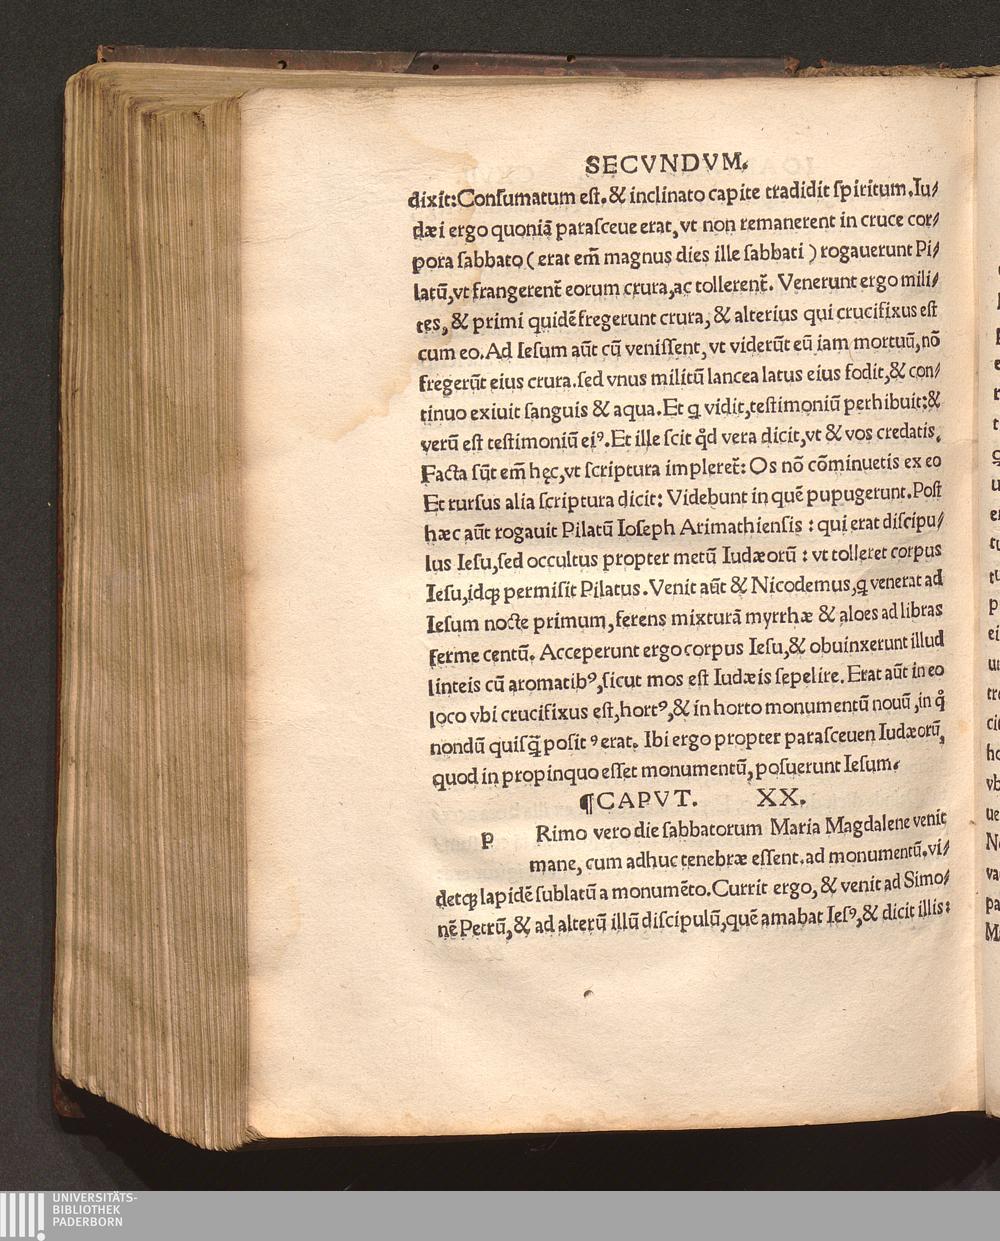 SECVNDVM.
dixit: Conſumatum eſt. & inclinato capite tradidit ſpiritum. Iu/
dæi ergo quoniã paraſceue erat, vt non remanerent in cruce cor/
pora ſabbato (erat em̃ magnus dies ille ſabbati) rogauerunt Pi/
latũ, vt frangerent̃ eorum crura, ac tollerent̃. Venerunt ergo mili/
tes, & primi quidẽ fregerunt crura, & alterius qui crucifixus eſt
cum eo. Ad Ieſum aũt cũ veniſſent, vt viderũt eũ iam mortuũ, nõ
fregerũt eius crura. ſed vnus militũ lancea latus eius fodit, & con/
tinuo exiuit ſanguis & aqua. Et ꝗ vidit, teſtimoniũ perhibuit: &
verũ eſt teſtimoniũ eiꝰ. Et ille ſcit qd̓ vera dicit, vt & vos credatis.
Facta ſũt em̃ hęc, vt ſcriptura impleret̃: Os nõ cõminuetis ex eo
Et rurſus alia ſcriptura dicit: Videbunt in quẽ pupugerunt. Poſt
hæc aũt rogauit Pilatũ Ioſeph Arimathienſis: qui erat diſcipu/
lus Ieſu, ſed occultus propter metũ Iudæorũ: vt tolleret corpus
Ieſu, idqꝫ permiſit Pilatus. Venit aũt & Nicodemus, ꝗ venerat ad
Ieſum nocte primum, ferens mixturã myrrhæ & aloes ad libras
ferme centũ. Acceperunt ergo corpus Ieſu, & obuinxerunt illud
linteis cũ aromatibꝰ, ſicut mos eſt Iudæis ſepelire. Erat aũt in eo
loco vbi crucifixus eſt, hortꝰ, & in horto monumentũ nouũ, in q̊
nondũ quiſꝗ̃ poſitꝰ erat. Ibi ergo propter paraſceuen Iudæorũ,
quod in propinquo eſſet monumentũ, poſuerunt Ieſum.
¶CAPVT. XX.
p Rimo vero die ſabbatorum Maria Magdalene venit
mane, cum adhuc tenebræ eſſent. ad monumentũ. vi/
detqꝫ lapidẽ ſublatũ a monumẽto. Currit ergo, & venit ad Simo/
nẽ Petrũ, & ad alterũ illũ diſcipulũ, quẽ amabat Ieſꝰ, & dicit illis:
UNIVERSITÄTS-
BIBLIOTHEK
PADERBORN